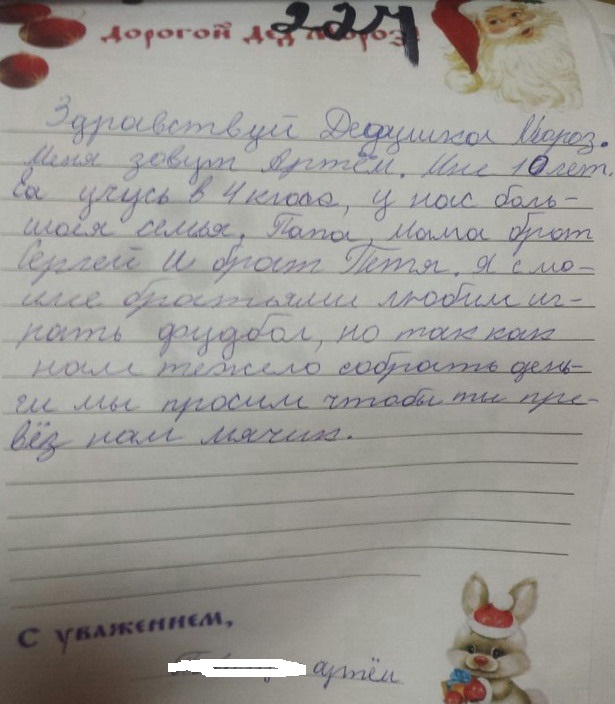 224
Дорогой Дед Мороз
Здравствуй Дедушка Мороз.
Меня зовут Артём. Мне 10 лет.
Я учусь в 4 класс, у нас боль-
шоя семья. Папа, мама брат
Сергей и брат Петя. Я с мо-
ими братьями любим иг-
рать фудбол, но так как
нам тежело собрать день-
ги мы просим чтобы ты при-
вёз нам мячик.
С уважением,
артём